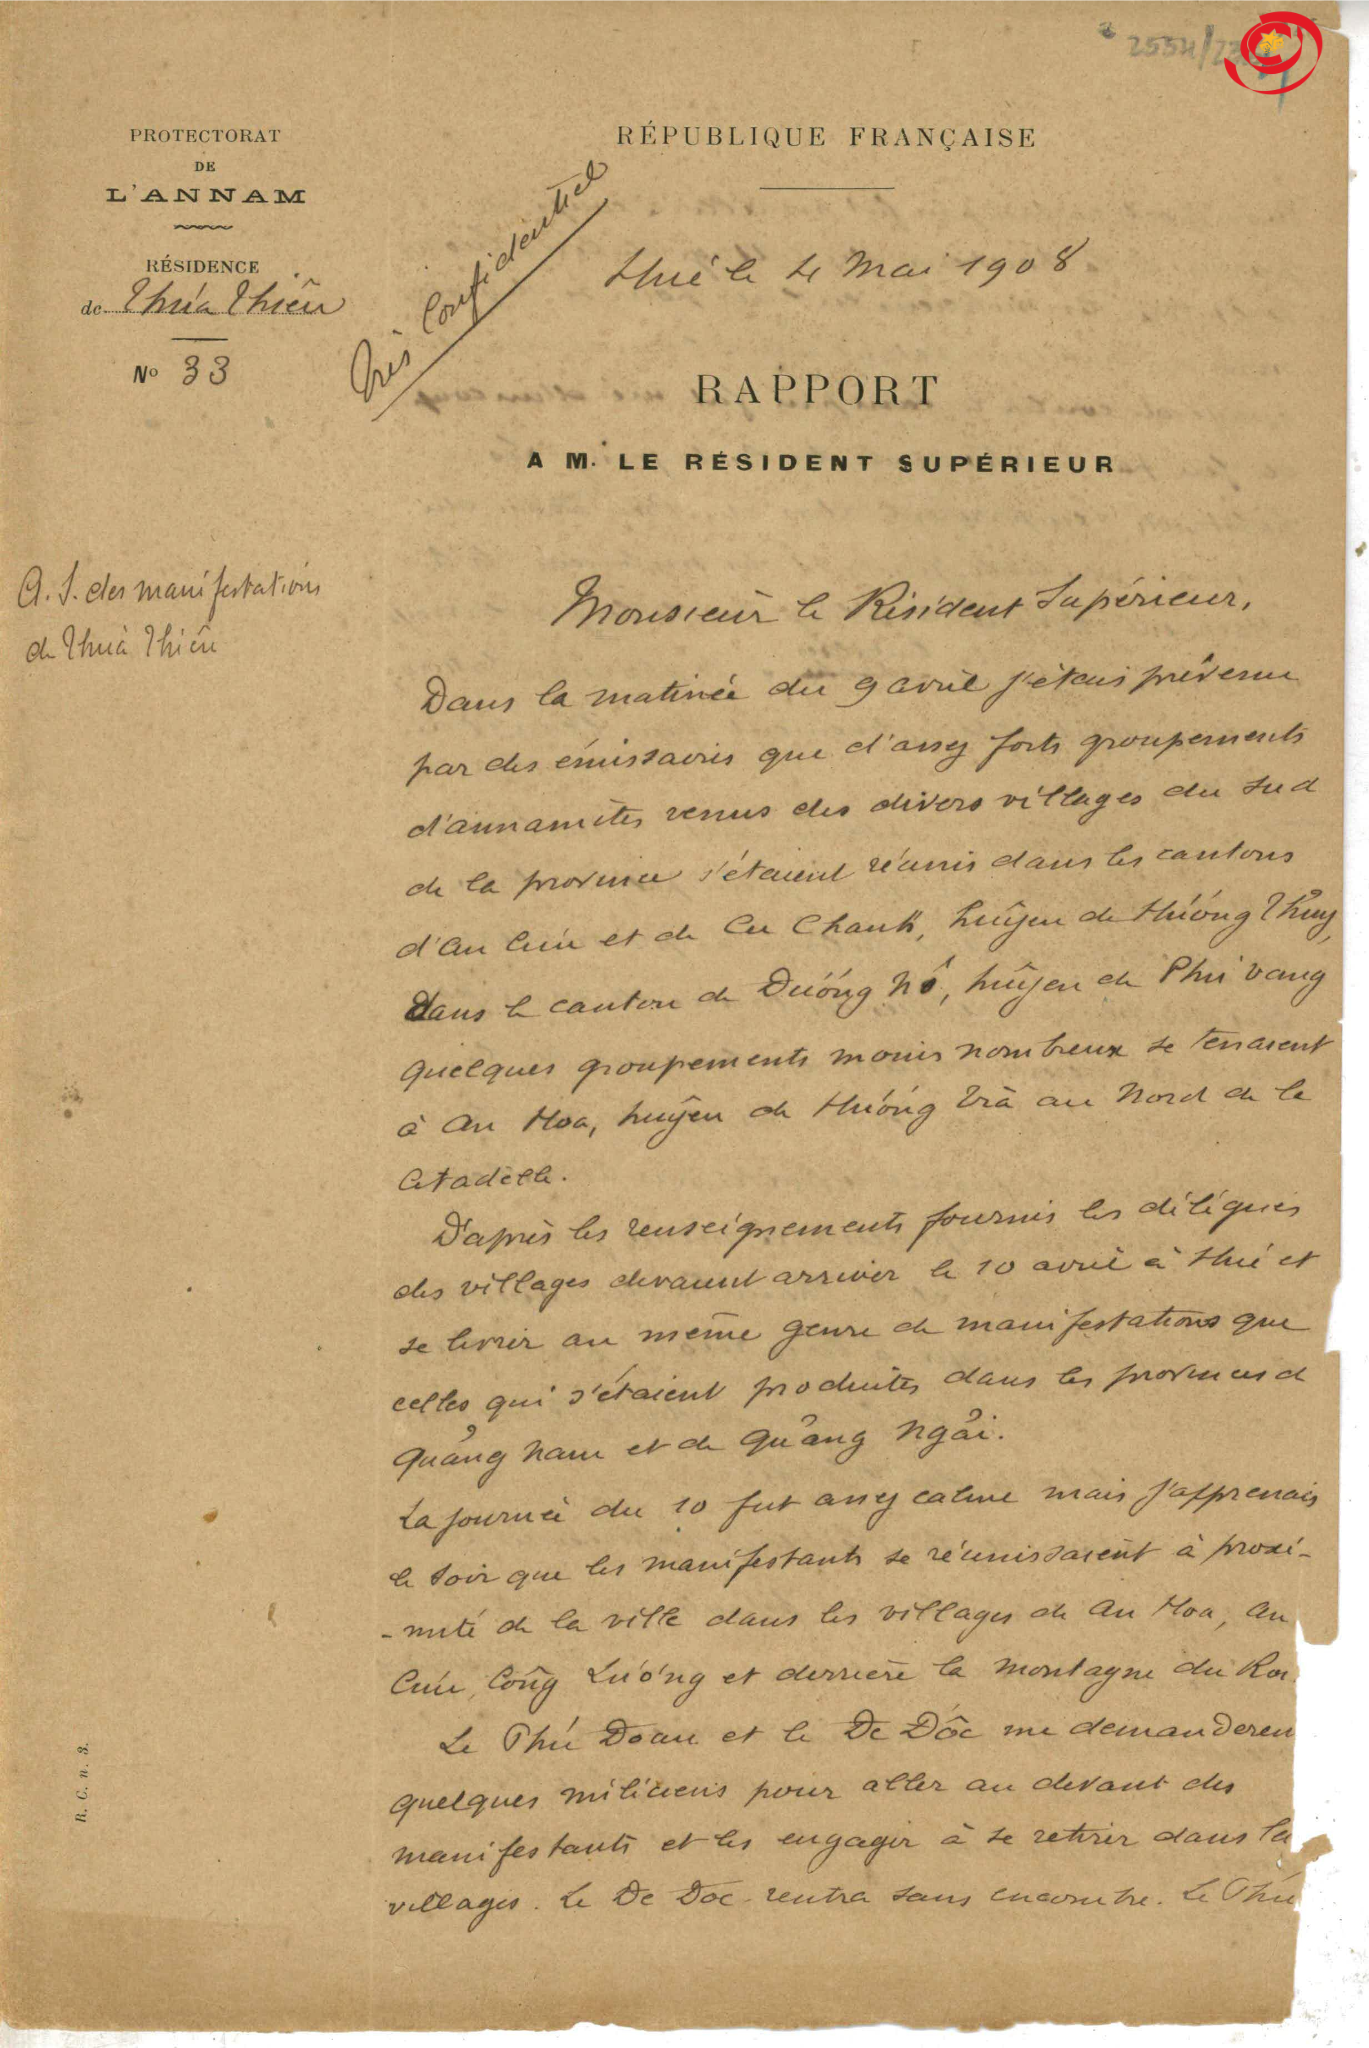 PROTECTORAT
DE
L'ANNAM
RÉSIDENCE
de Thừa Thiên
No 33
Très Confidentiel
RÉPUBLIQUE FRANÇAISE
Hué le 4 Mai 1908
RAPPORT
A M. LE RÉSIDENT SUPÉRIEUR
A. S. des manifestations
de Thừa Thiên
Monsieur le Résident Supérieur,
Dans la matinée du 9 avril j'étais prévenu
par des émissaires que d'assez forts groupements
d'annamites venus des divers villages du Sud
de la province s'étaient réunis dans les cantons
d'An Cứu et de Cu Chanh, huyện de Hương Thủy,
dans le canton de Dương Nô, huyện de Phú Vang
quelques groupements moins nombreux se tenaient
à An Hoa, huyện de Hương Trà au Nord de la
Citadelle.
D'après les renseignements fournis les délégués
des villages devaient arriver le 10 avril à Hué et
se livrer au même genre de manifestations que
celles qui s'étaient produites dans les provinces d
Quảng Nam et de Quảng Ngải.
La journée du 10 fut assez calme mais j'apprenais
le soir que les manifestants se réunissaient à proxi-
-mité de la ville dans les villages de An Hoa, An
Cứu, Công Lương et derrière la montagne du Roi.
Le Phủ Doãn et le Đề Đốc me demandèren
quelques miliciens pour aller au devant des
manifestants et les engager à se retirer dans la
villages. Le Đề Đốc rentra sans encombre. Le Phủ
R. C. n. 3.